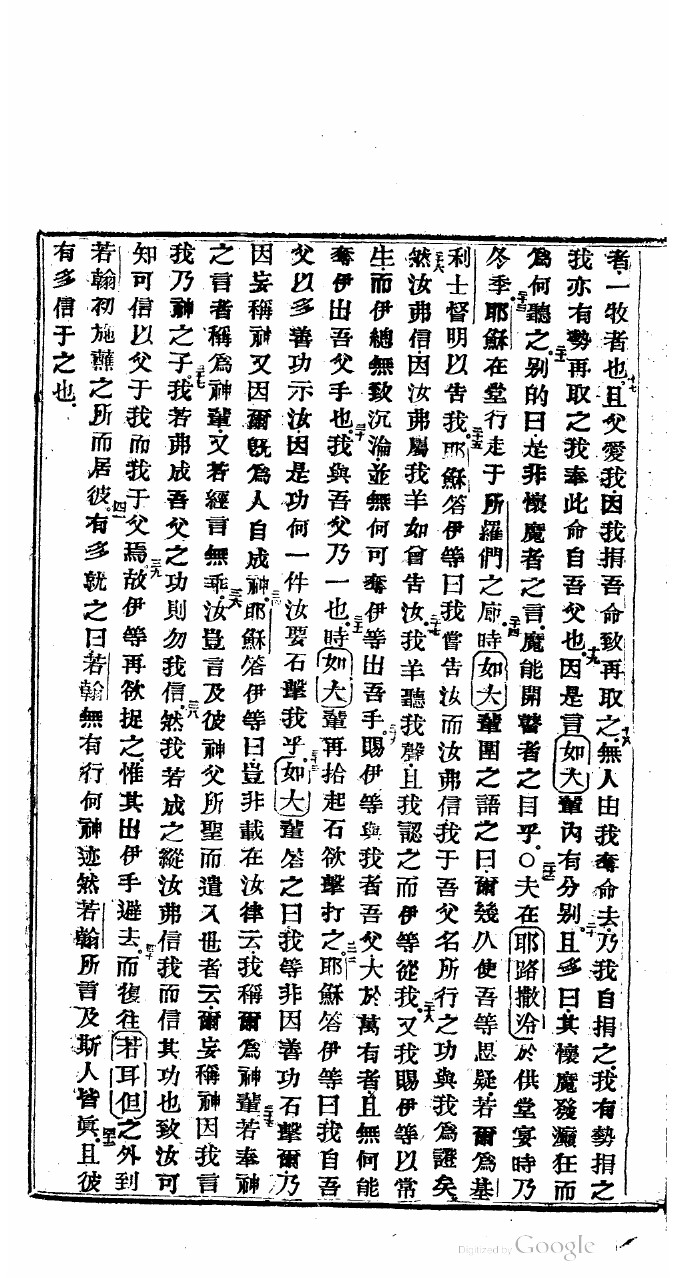 者一牧者也。十七且父愛我因我捐吾命致再取之。十八無人由我奪命夫。乃我自捐之。我有勢捐之
我亦有勢再取之我奉此命自吾父也。十九因是言如大輩內有分别。二十且多曰。其懷魔發癲狂而
爲何聽之。二一别的曰。是非懷魔者之言。魔能開瞽者之目乎。○二二夫在耶路撒冷於供堂宴時乃
冬季。二三耶穌在堂行走于所羅們之廊。二四時如大輩圍之語之曰。爾幾久使吾等思疑。若爾爲基
利士督明以告我。二五耶穌答伊等曰我嘗告汝而汝弗信我于吾父名所行之功與我爲證矣。
二六然汝弗信因汝弗屬我羊如曾告汝。二七我羊聽我聲。且我認之而伊等從我。二八又我賜伊等以常
生而伊總無致沉淪並無何可奪伊等出吾手。二九賜伊等與我者吾父大於萬有者。且無何能
奪伊出吾父手也。三十我與吾父乃一也。三一時如大輩再拾起石欲擊打之。三二耶穌答伊等曰我自吾
父以多善功示汝。因是功何一件汝要石擊我乎。三三如大輩答之曰我等非因善功石擊爾。乃
因妄稱神又因爾旣爲人自成神。三四耶穌答伊等曰。豈非載在汝律云。我稱爾爲神輩。三五若奉神
之言者稱爲神輩。又若經言無乖。三六汝豈言及彼神父所聖而遣入世者云。爾妄稱神因我言
我乃神之子。三七我若弗成吾父之功則勿我信。三八然我若成之。縱汝弗信我而信其功也致汝可
知可信以父于我而我于父焉。三九故伊等再欲捉之。惟其出伊手避去。四十而復往若耳但之外到
若翰初施蘸之所而居彼。四一有多就之曰若翰無有行何神迹。然若翰所言及斯人皆眞。四二且彼
有多信于之也。
Digitized by Google